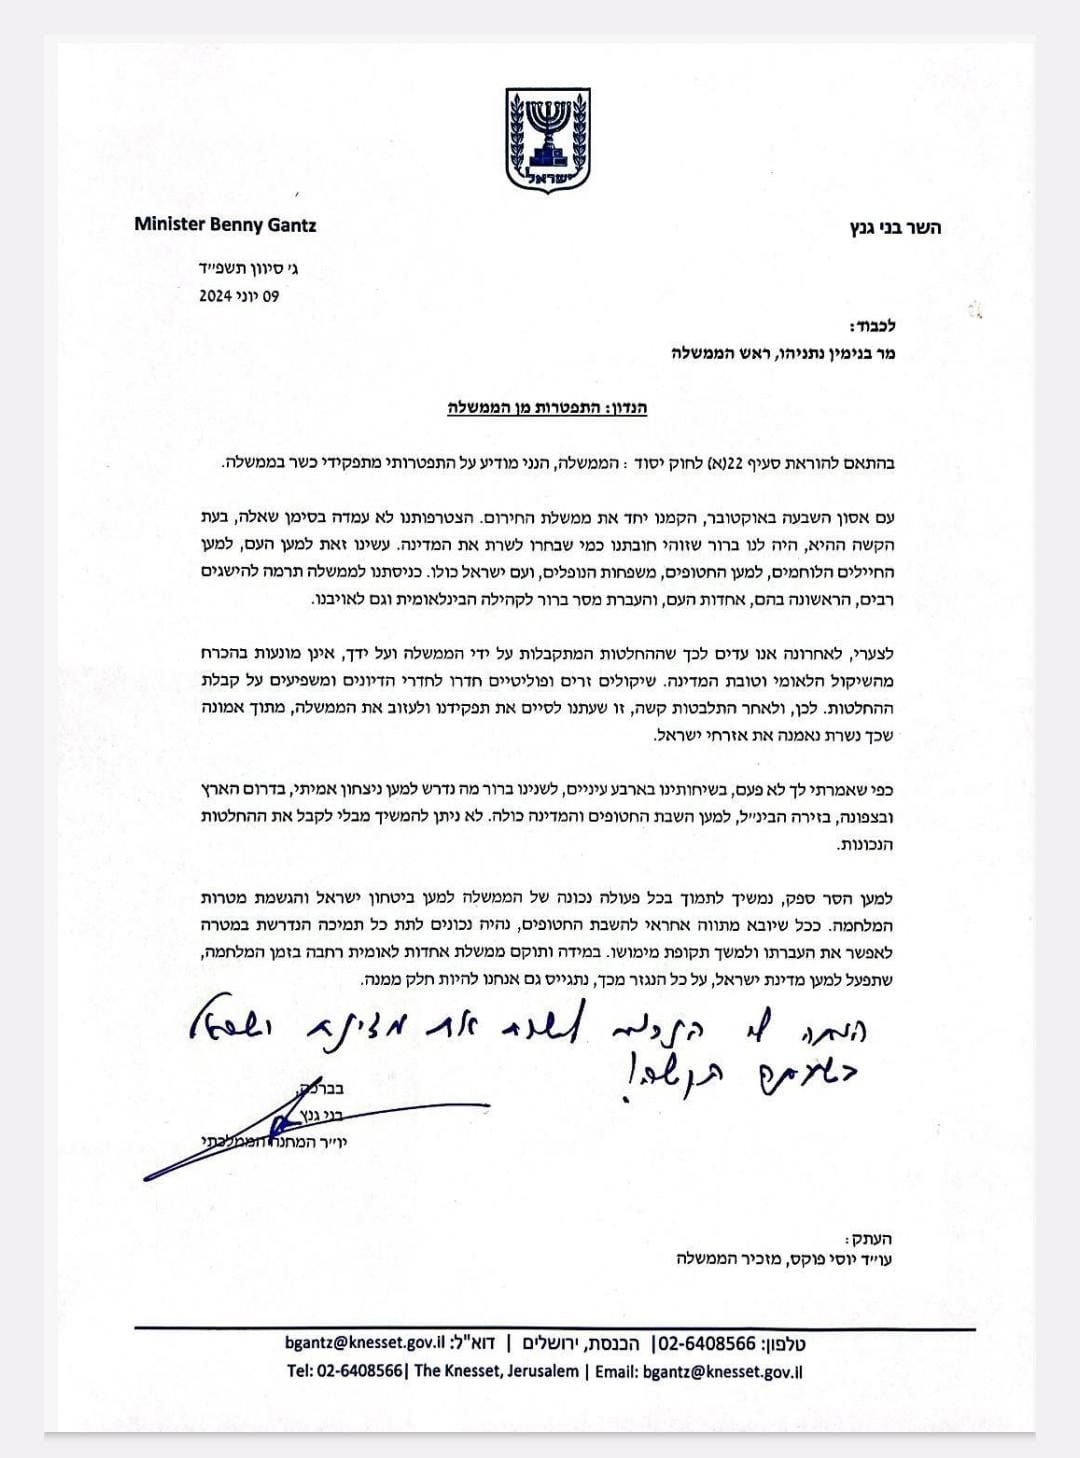 ישראל
Minister Benny Gantz
השר בני גנץ
ג׳ סיוון תשפ״ד
09 יוני 2024
לכבוד:
מר בנימין נתניהו, ראש הממשלה
הנדון: התפטרות מן הממשלה
בהתאם להוראת סעיף 22(א) לחוק יסוד : הממשלה, הנני מודיע על התפטרותי מתפקידי כשר בממשלה.
עם אסון השבעה באוקטובר, הקמנו יחד את ממשלת החירום. הצטרפותנו לא עמדה בסימן שאלה, בעת
הקשה ההיא, היה לנו ברור שזוהי חובתנו כמי שבחרו לשרת את המדינה. עשינו זאת למען העם, למען
החיילים הלוחמים, למען החטופים, משפחות הנופלים, ועם ישראל כולו. כניסתנו לממשלה תרמה להישגים
רבים, הראשונה בהם, אחדות העם, והעברת מסר ברור לקהילה הבינלאומית וגם לאויבנו.
לצערי, לאחרונה אנו עדים לכך שההחלטות המתקבלות על ידי הממשלה ועל ידך, אינן מונעות בהכרח
מהשיקול הלאומי וטובת המדינה. שיקולים זרים ופוליטיים חדרו לחדרי הדיונים ומשפיעים על קבלת
ההחלטות. לכן, ולאחר התלבטות קשה, זו שעתנו לסיים את תפקידנו ולעזוב את הממשלה, מתוך אמונה
שכך נשרת נאמנה את אזרחי ישראל.
כפי שאמרתי לך לא פעם, בשיחותינו בארבע עיניים, לשנינו ברור מה נדרש למען ניצחון אמיתי, בדרום הארץ
ובצפונה, בזירה הבינ״ל, למען השבת החטופים והמדינה כולה. לא ניתן להמשיך מבלי לקבל את ההחלטות
הנכונות.
למען הסר ספק, נמשיך לתמוך בכל פעולה נכונה של הממשלה למען ביטחון ישראל והגשמת מטרות
המלחמה. ככל שיובא מתווה אחראי להשבת החטופים, נהיה נכונים לתת כל תמיכה הנדרשת במטרה
לאפשר את העברתו ולמשך תקופת מימושו. במידה ותוקם ממשלת אחדות לאומית רחבה בזמן המלחמה,
שתפעל למען מדינת ישראל, על כל הנגזר מכך, נתגייס גם אנחנו להיות חלק ממנה.
היתה לי הזכות לשרת את מדינת ישראל
בשעתה הקשה!
בברכה,
בני גנץ
יו״ר המחנה הממלכתי
העתק:
עו״ד יוסי פוקס, מזכיר הממשלה
טלפון: 02-6408566| הכנסת, ירושלים | דוא"ל: bgantz@knesset.gov.il
Tel: 02-6408566| The Knesset, Jerusalem | Email: bgantz@knesset.gov.il